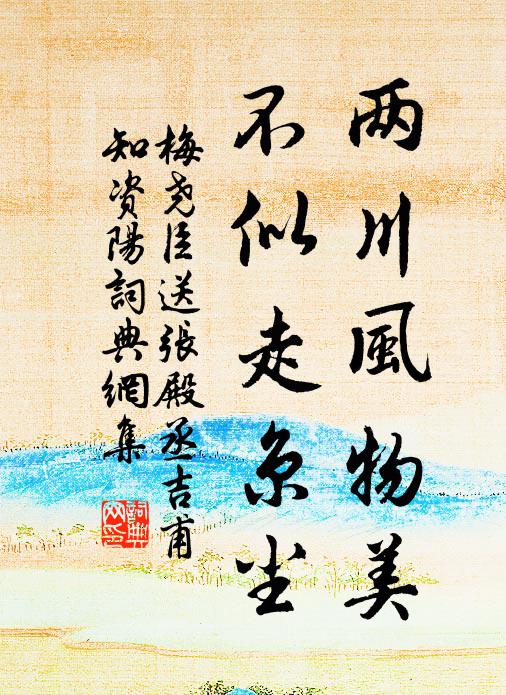 两川風物美
不似走京尘
梅尧臣送張殿丞吉甫
知资陽詞典網集
詞典
网印